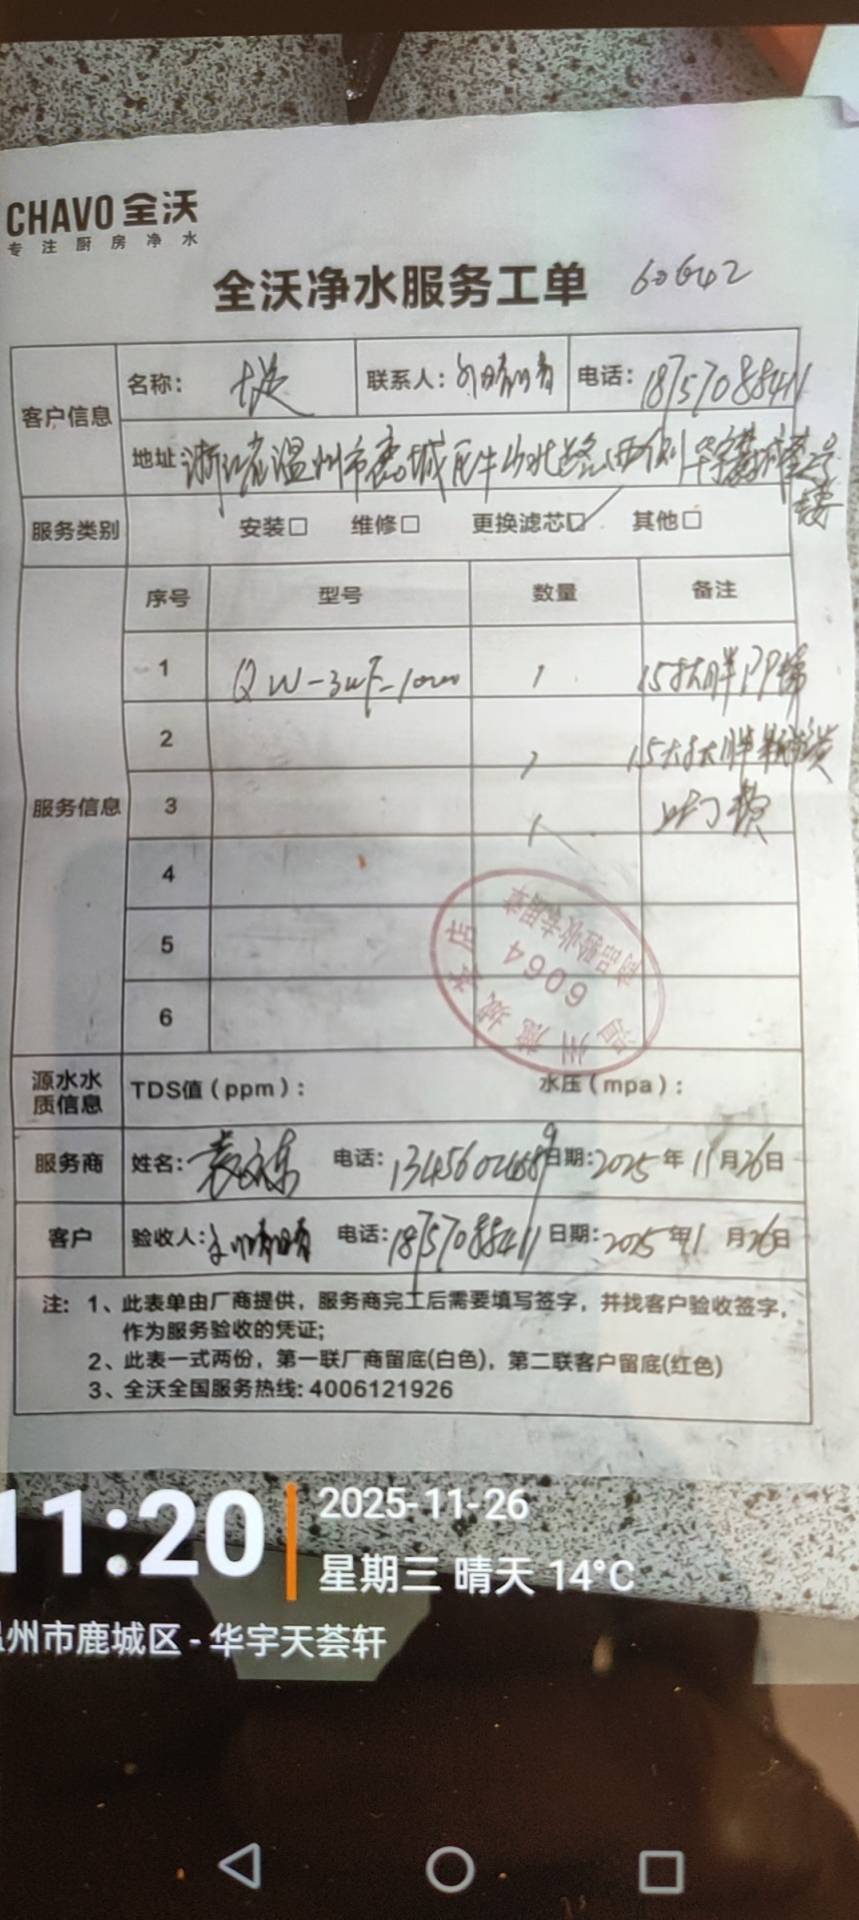 CHAVO 全沃
专注厨房净水
全沃净水服务工单 60642
客户信息 名称： 联系人： 电话：
地址：浙江省温州市鹿城区牛山北路西侧华宇 号
楼
服务类别 安装□ 维修□ 更换滤芯☑ 其他□
服务信息
序号 型号 数量 备注
1 QW-3UF-1000 1 15寸大胖PP棉
2 1 15寸大胖
3 1 上门费
4
5
6
6064
源水水质信息 TDS值（ppm）： 水压（mpa）：
服务商 姓名：袁 电话： 日期：2025年11月26日
客户 验收人： 电话： 日期：2025年11月26日
注：1、此表单由厂商提供，服务商完工后需要填写签字，并找客户验收签字，
作为服务验收的凭证；
2、此表一式两份，第一联厂商留底(白色)，第二联客户留底(红色)
3、全沃全国服务热线: 4006121926
11:20
2025-11-26
星期三 晴天 14°C
州市鹿城区 - 华宇天荟轩